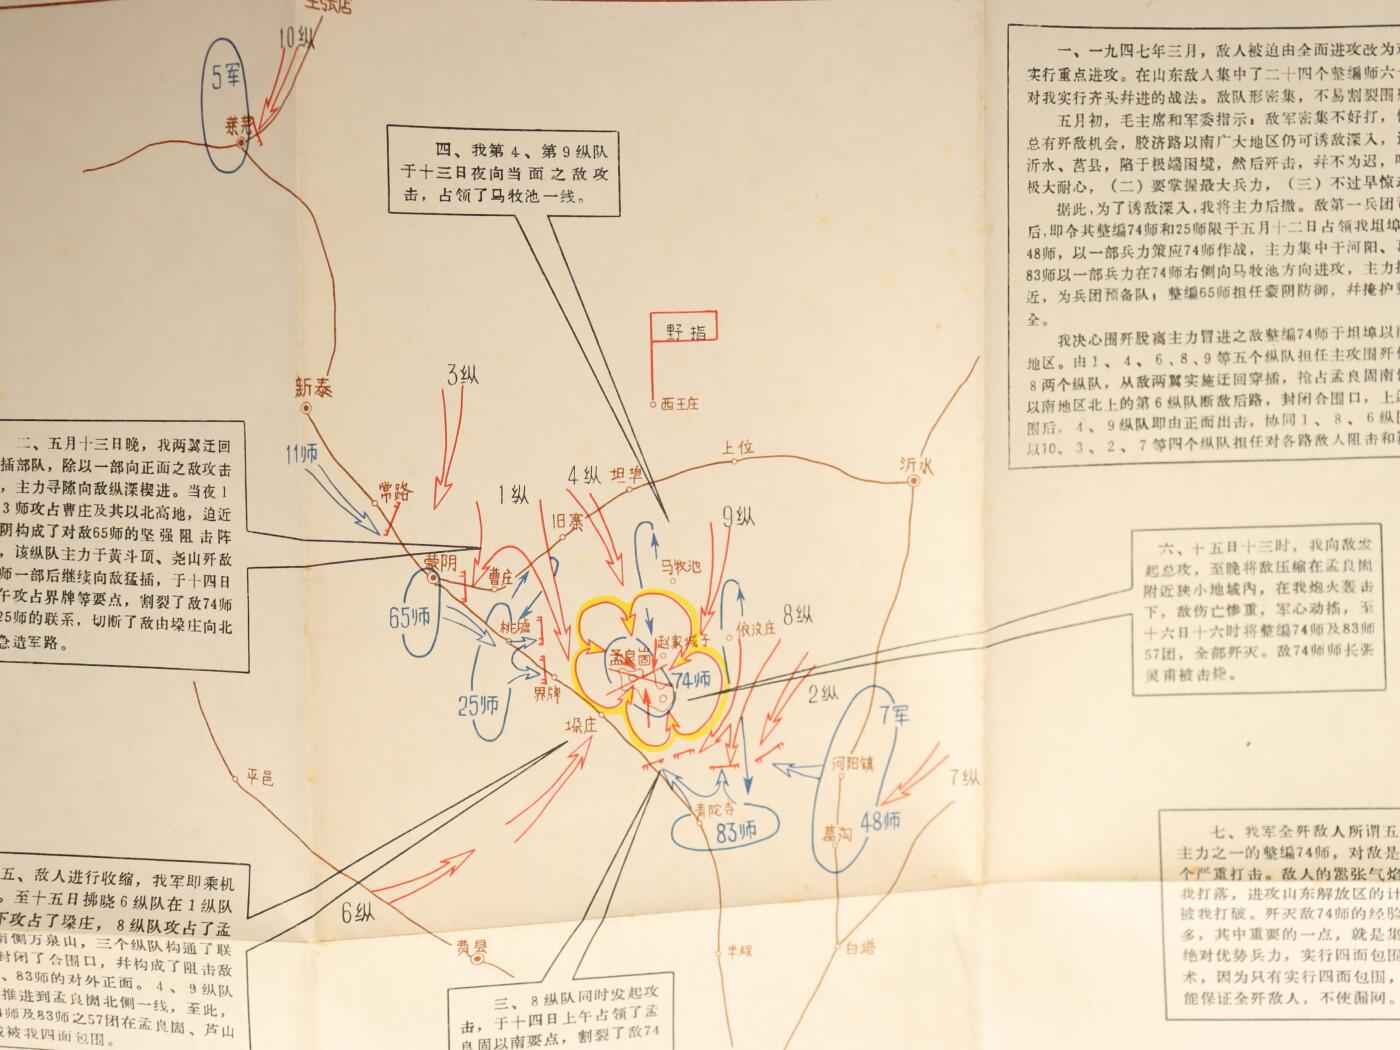 一、一九四七年三月，敌人被迫由全面进攻改为
实行重点进攻。在山东敌人集中了二十四个整编师六十
对我实行齐头幷进的战法。敌队形密集，不易割裂围
五月初，毛主席和军委指示：敌军密集不好打，
总有歼敌机会，胶济路以南广大地区仍可诱敌深入，
沂水、莒县，陷于极端困境，然后歼击，幷不为迟，
极大耐心，（二）要掌握最大兵力，（三）不过早惊
据此，为了诱敌深入，我将主力后撤。敌第一兵团
后，即令其整编74师和25师限于五月十二日占领我坦埠
48师，以一部兵力策应74师作战，主力集中于河阳、
83师以一部兵力在74师右侧向马牧池方向进攻，主力
近，为兵团预备队；整编65师担任蒙阴防御，幷掩护
全。
我决心围歼脱离主力冒进之敌整编74师于坦埠以南
地区。由1、4、6、8、9等五个纵队担任主攻围歼
8两个纵队，从敌两翼实施迂回穿插，抢占孟良崮南
以南地区北上的第6纵队断敌后路，封闭合围口，上
围后，4、9纵队即由正面出击，协同1、8、6纵
以10、3、2、7等四个纵队担任对各路敌人阻击和
四、我第4、第9纵队
于十三日夜向当面之敌攻
击，占领了马牧池一线。
二、五月十三日晚，我两翼迂回
插部队，除以一部向正面之敌攻击
，主力寻隙向敌纵深楔进。当夜1
3师攻占曹庄及其以北高地，迫近
阴构成了对敌65师的坚强阻击阵
，该纵队主力于黄斗顶、尧山歼敌
师一部后继续向敌猛插，于十四日
午攻占界牌等要点，割裂了敌74师
25师的联系，切断了敌由垛庄向北
急造军路。
六、十五日十三时，我向敌发
起总攻，至晚将敌压缩在孟良崮
附近狭小地域内，在我炮火轰击
下，敌伤亡惨重，军心动摇，至
十六日十六时将整编74师及83师
57团，全部歼灭。敌74师师长张
灵甫被击毙。
五、敌人进行收缩，我军即乘机
。至十五日拂晓6纵队在1纵队
下攻占了垛庄，8纵队攻占了孟
南侧万泉山，三个纵队构通了联
封闭了合围口，幷构成了阻击敌
、83师的对外正面。4、9纵队
推进到孟良崮北侧一线，至此，
4师及83师之57团在孟良崮、芦山
被我四面包围。
三、8纵队同时发起攻
击，于十四日上午占领了孟
良固以南要点，割裂了敌74
七、我军全歼敌人所谓五
主力之一的整编74师，对敌是
个严重打击。敌人的嚣张气焰
我打落，进攻山东解放区的计
被我打破。歼灭敌74师的经验
多，其中重要的一点，就是集
绝对优势兵力，实行四面包围
术，因为只有实行四面包围，
能保证全歼敌人，不使漏网。
10纵
5军
莱芜
新泰
11师
常路
3纵
1纵
4纵
坦埠
旧寨
野指
西王庄
上位
沂水
9纵
马牧池
蒙阴
曹庄
65师
桃墟
25师
界牌
垛庄
孟良崮
赵家城子
74师
依汶庄
8纵
2纵
7军
河阳镇
48师
7纵
葛沟
青陀寺
83师
平邑
6纵
费县
半程
白塔